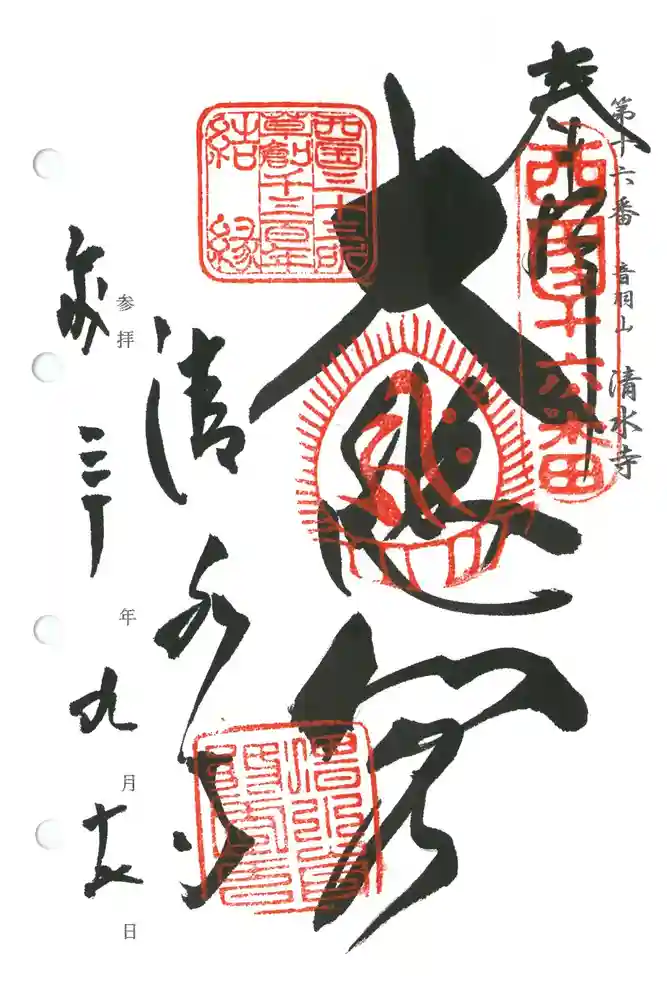 第十六番 音羽山 清水寺
奉拝
西国十六番
大悲閣
西国三十三所
草創千三百年
結縁
清水寺
参拝 平成三十年九月十五日